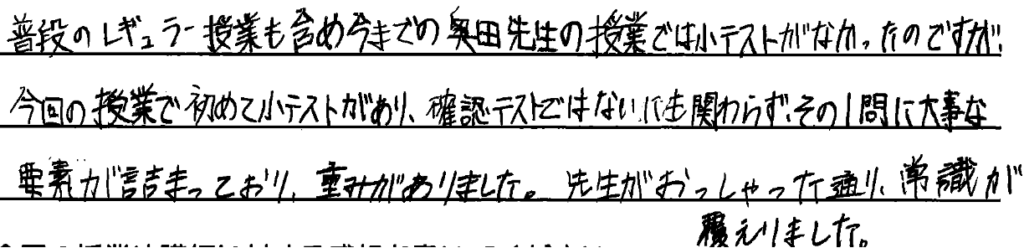 普段のレギュラー授業も含め今までの奥田先生の授業では小テストがなかったのですが、
今回の授業で初めて小テストがあり、確認テストではないにも関わらず、その1問に大事な
要素が詰まっており、重みがありました。先生がおっしゃった通り、常識が
覆えりました。